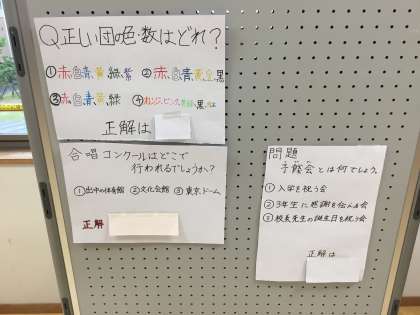 Q.正しい団の色・数はどれ？
①赤,白,青,黄,緑,紫 ②赤,白,青,黄,金,黒
③赤,白,青,黄,緑 ④オレンジ,ピンク,黄緑,黒,
正解は
合唱コンクールはどこで
行われるでしょうか？
①出中の体育館 ②文化会館 ③東京ドーム
正解
問題
予餞会とは何でしょう。
①入学を祝う会
②3年生に感謝を伝える会
③校長先生の誕生日を祝う会
正解は